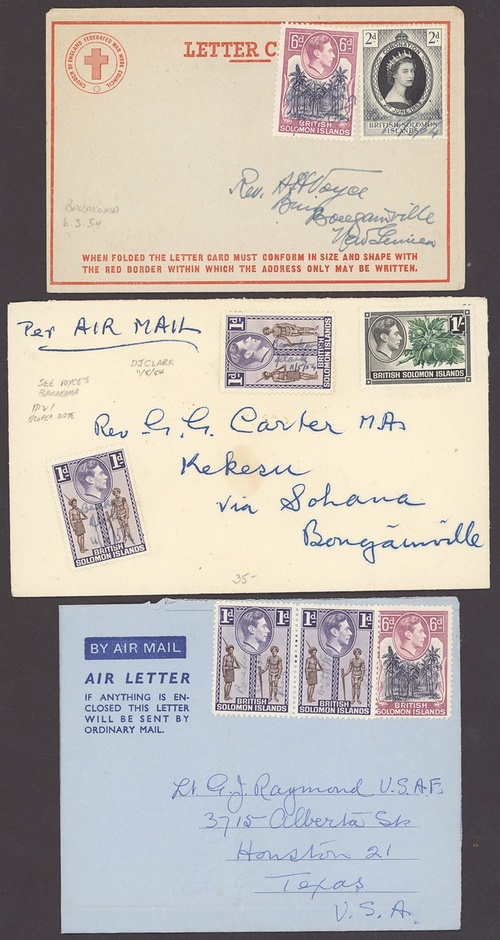 CHURCH OF ENGLAND FEDERATED WAR WORK COUNCIL
LETTER C
6d 6d
BRITISH
SOLOMON ISLANDS
2d 2d
CORONATION
2 JUNE 1953
BRITISH SOLOMON
ISLANDS
Rev. A H Voyce
Buin
Bougainville
New Guinea
BARAKOMA
6.3.54
WHEN FOLDED THE LETTER CARD MUST CONFORM IN SIZE AND SHAPE WITH
THE RED BORDER WITHIN WHICH THE ADDRESS ONLY MAY BE WRITTEN.
Per AIR MAIL
DJ CLARK
11/5/54
SEE VOYCE'S
BARAKOMA
1d
1d
BRITISH
SOLOMON ISLANDS
1/-
BRITISH SOLOMON ISLANDS
Rev G. G. Carter M.A.
Kekesu
via Sohana
Bougainville
1d 1d
BRITISH
SOLOMON ISLANDS
35-
BY AIR MAIL
AIR LETTER
IF ANYTHING IS EN-
CLOSED THIS LETTER
WILL BE SENT BY
ORDINARY MAIL.
1d 1d
BRITISH
SOLOMON ISLANDS
1d 1d
BRITISH
SOLOMON ISLANDS
6d 6d
BRITISH
SOLOMON ISLANDS
Lt. G. J. Raymond U.S.A.F.
3715 Alberta St.
Houston 21
Texas
U.S.A.